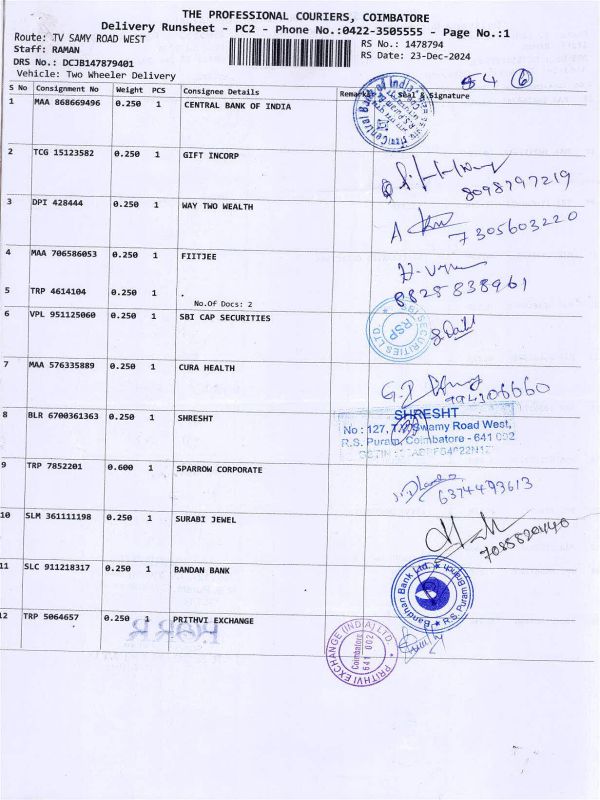 THE PROFESSIONAL COURIERS, COIMBATORE
Delivery Runsheet - PC2 - Phone No.:0422-3505555 - Page No.:1
Route: TV SAMY ROAD WEST
RS No.: 1478794
Staff: RAMAN
RS Date: 23-Dec-2024
DRS No.: DCJB147879401
Vehicle: Two Wheeler Delivery
54 6
S No Consignment No Weight PCS Consignee Details Remarks Seal & Signature
1 MAA 868669496 0.250 1 CENTRAL BANK OF INDIA
2 TCG 15123582 0.250 1 GIFT INCORP
8098797219
3 DPI 428444 0.250 1 WAY TWO WEALTH
7305603220
4 MAA 706586053 0.250 1 FIITJEE
8825838961
5 TRP 4614104 0.250 1 .
No.Of Docs: 2
6 VPL 951125060 0.250 1 SBI CAP SECURITIES
SBI SECURITIES LTD
RSP
7 MAA 576335889 0.250 1 CURA HEALTH
8 BLR 6700361363 0.250 1 SHRESHT
SHRESHT
No : 127, T.V. Swamy Road West,
R.S. Puram, Coimbatore - 641 002
9 TRP 7852201 0.600 1 SPARROW CORPORATE
6374493613
10 SLM 361111198 0.250 1 SURABI JEWEL
7085820440
11 SLC 911218317 0.250 1 BANDAN BANK
Bandhan Bank Ltd.
R.S. Puram Branch
12 TRP 5064657 0.250 1 PRITHVI EXCHANGE
PRITHVI EXCHANGE (INDIA) LTD
Coimbatore
641 002